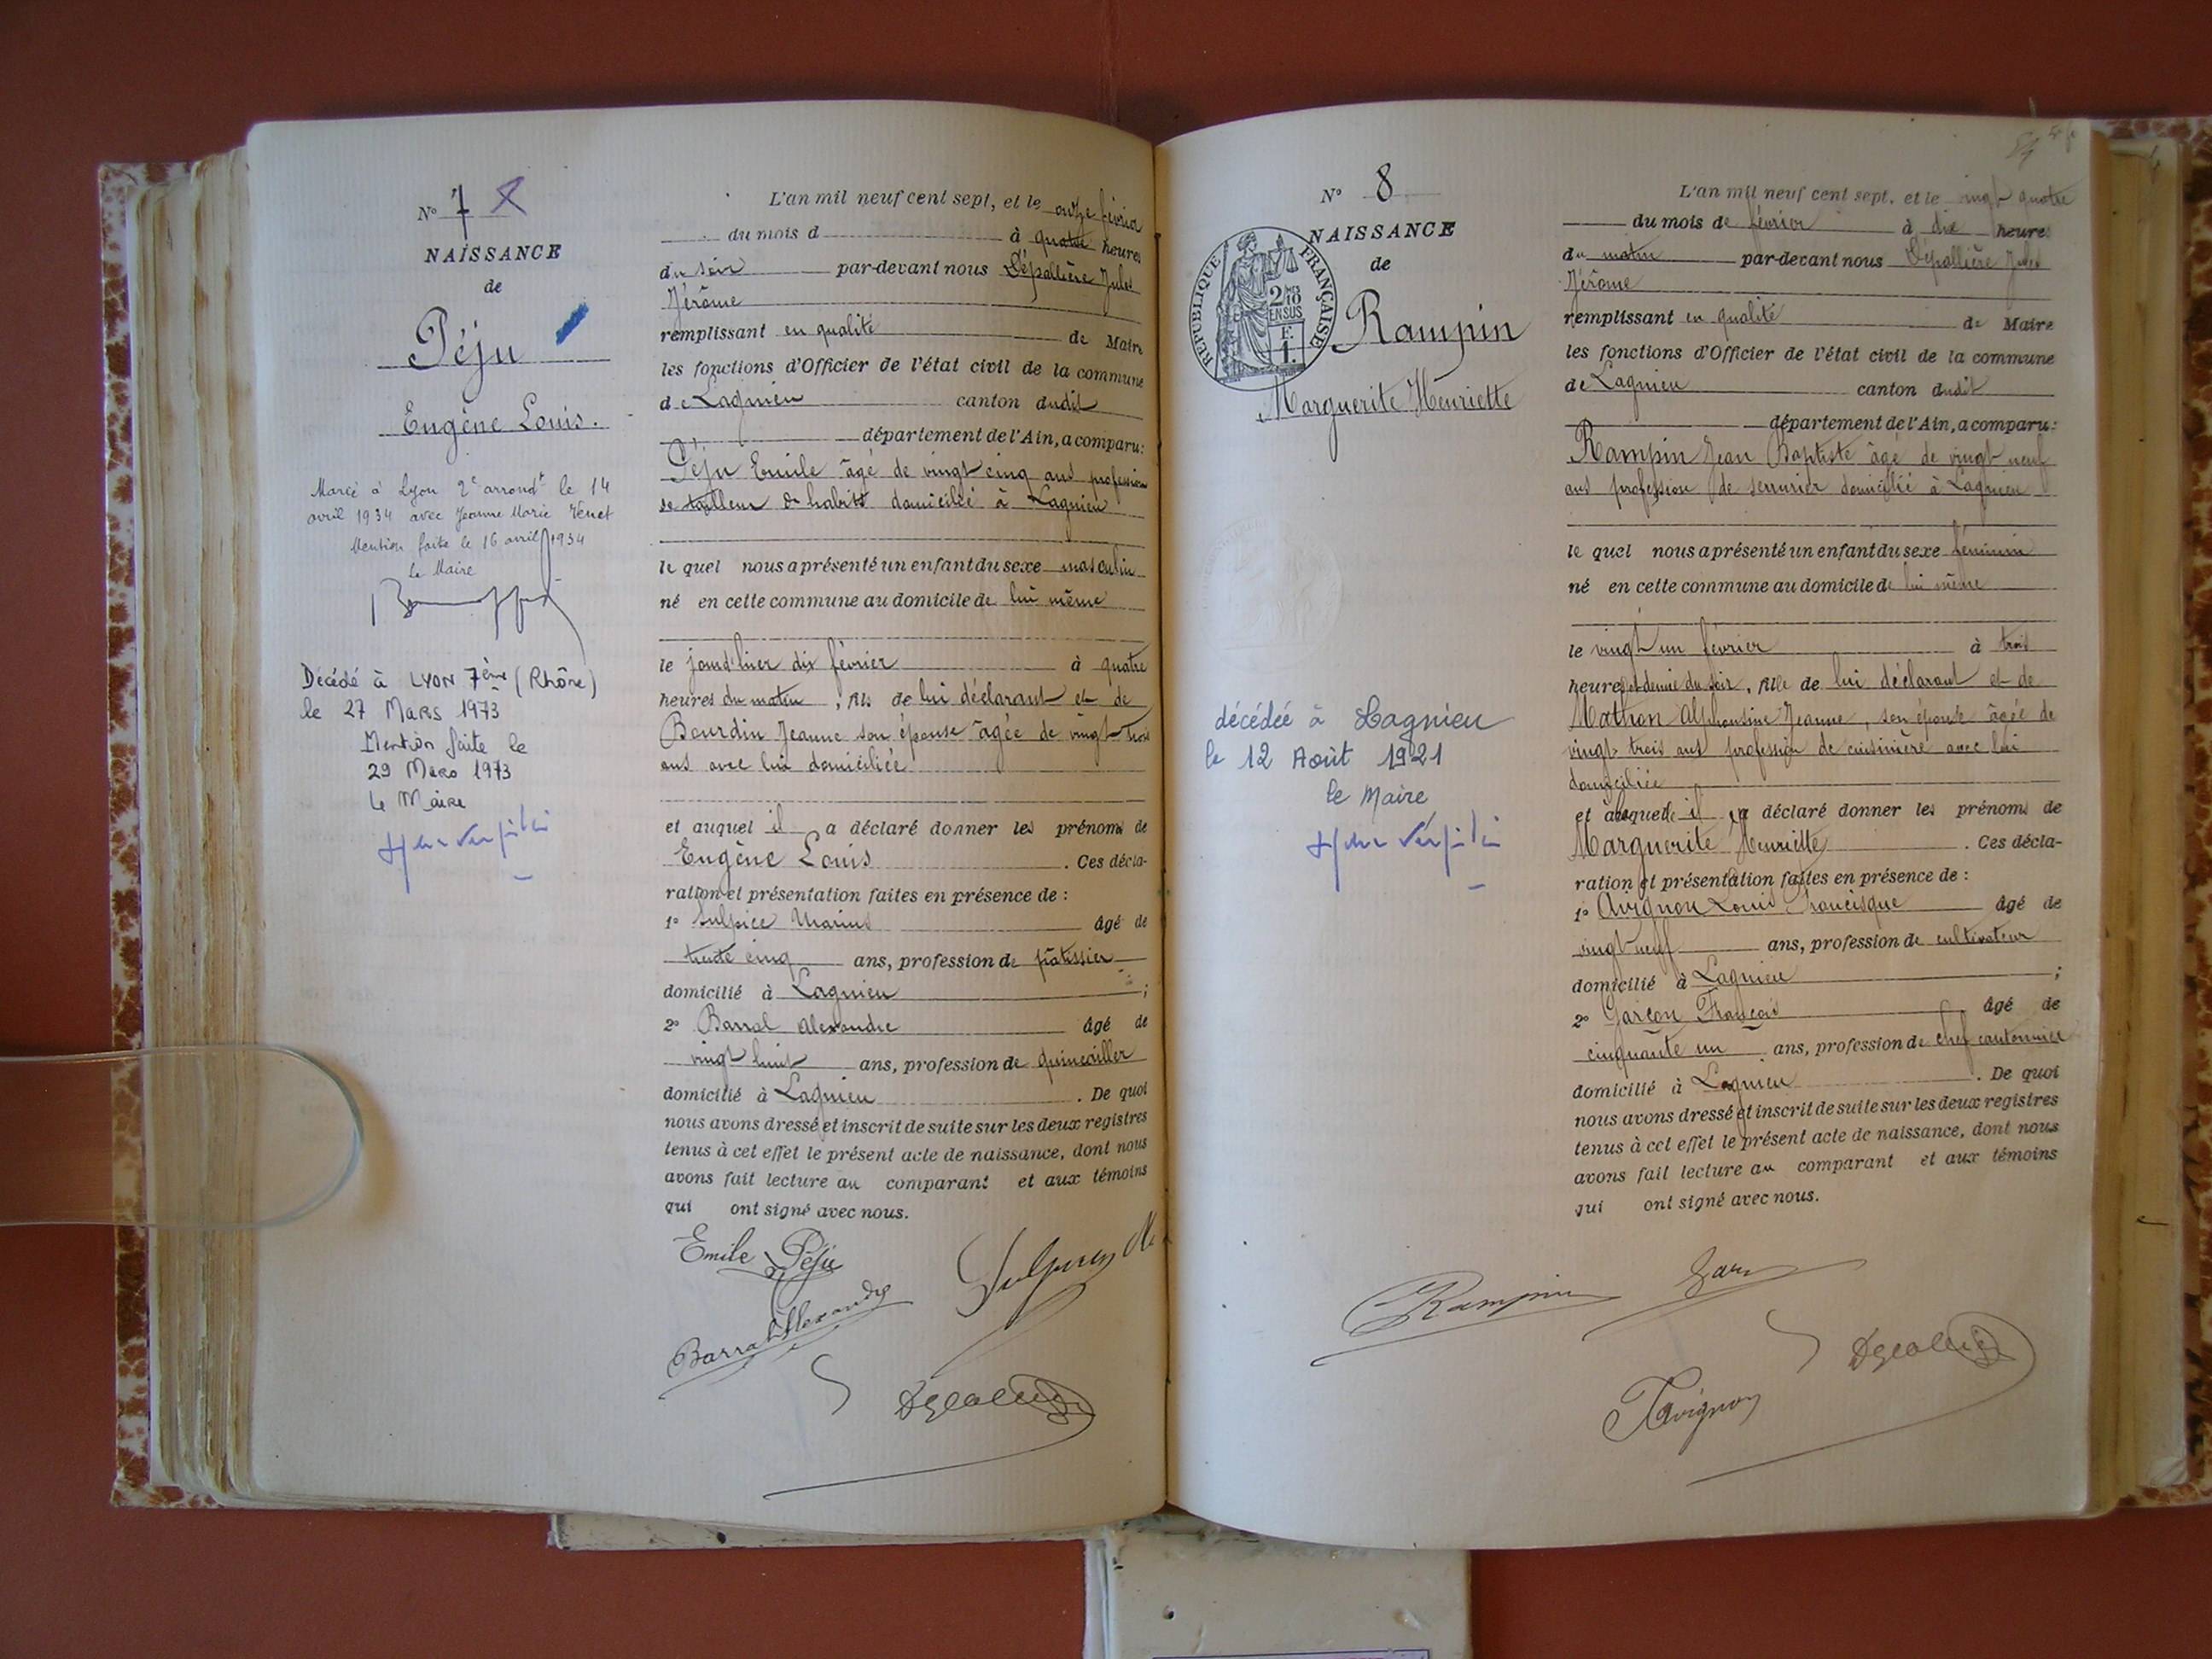 N° 7
NAISSANCE
de
Péju
Eugène Louis.
Marié à Lyon 2e arrondt le 14
avril 1934 avec Jeanne Marie
Mention faite le 16 avril 1934
le Maire
Décédé à LYON 7ème (Rhône)
le 27 Mars 1973
Mention faite le
29 Mars 1973
le Maire
L'an mil neuf cent sept, et le onze février
du mois d à quatre heures
du soir par-devant nous Dépallière Jules
Jérôme
remplissant en qualité de Maire
les fonctions d'Officier de l'état civil de la commune
de Lagnieu canton dudit
département de l'Ain, a comparu:
Péju Emile âgé de vingt cinq ans profession
de tailleur d'habits domicilié à Lagnieu
le quel nous a présenté un enfant du sexe masculin
né en cette commune au domicile de lui même
le jour d'hier dix février à quatre
heures du matin, fils de lui déclarant et de
Bourdin Jeanne son épouse âgée de vingt trois
ans avec lui domiciliée
et auquel il a déclaré donner les prénoms de
Eugène Louis. Ces décla-
ration et présentation faites en présence de :
1° Sulpice Marius âgé de
trente cinq ans, profession de pâtissier
domicilié à Lagnieu ;
2° Barral Alexandre âgé de
vingt huit ans, profession de quincailler
domicilié à Lagnieu. De quoi
nous avons dressé et inscrit de suite sur les deux registres
tenus à cet effet le présent acte de naissance, dont nous
avons fait lecture au comparant et aux témoins
qui ont signé avec nous.
Emile Péju
Barral Alexandre
N° 8
NAISSANCE
de
RÉPUBLIQUE FRANÇAISE
2/10
EN SUS
Rampin
Marguerite Henriette
décédée à Lagnieu
le 12 Août 1921
le Maire
L'an mil neuf cent sept, et le vingt quatre
du mois de février à dix heures
du matin par-devant nous Dépallière Jules
Jérôme
remplissant en qualité de Maire
les fonctions d'Officier de l'état civil de la commune
de Lagnieu canton dudit
département de l'Ain, a comparu:
Rampin Jean Baptiste âgé de vingt neuf
ans profession de serrurier domicilié à Lagnieu
le quel nous a présenté un enfant du sexe féminin
né en cette commune au domicile de lui même
le vingt un février à trois
heures et demie du soir, fille de lui déclarant et de
Mathon Alphonsine Jeanne, son épouse âgée de
vingt trois ans profession de cuisinière avec lui
domiciliée
et auquel il a déclaré donner les prénoms de
Marguerite Henriette. Ces décla-
ration et présentation faites en présence de :
1° Avignon Louis Francisque âgé de
vingt neuf ans, profession de cultivateur
domicilié à Lagnieu ;
2° Garçon François âgé de
cinquante un ans, profession de chef cantonnier
domicilié à Lagnieu. De quoi
nous avons dressé et inscrit de suite sur les deux registres
tenus à cet effet le présent acte de naissance, dont nous
avons fait lecture au comparant et aux témoins
qui ont signé avec nous.
Rampin
Avignon